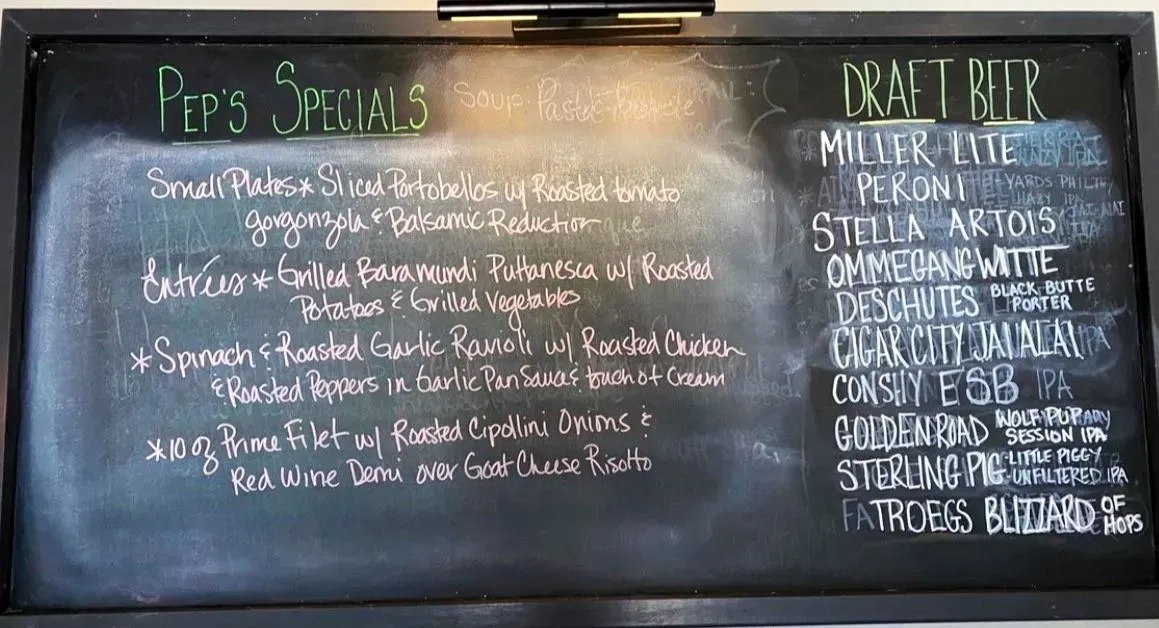 PEP'S SPECIALS
Soup. Pasta
Small Plates * Sliced Portobellos w/ Roasted tomato
gorgonzola & Balsamic Reduction
Entrées * Grilled Baramundi Puttanesca w/ Roasted
Potatoes & Grilled Vegetables
* Spinach & Roasted Garlic Ravioli w/ Roasted Chicken
& Roasted Peppers in Garlic Pan Sauce & touch of Cream
* 10 oz Prime Filet w/ Roasted Cipollini Onions &
Red Wine Demi over Goat Cheese Risotto
DRAFT BEER
MILLER LITE
PERONI
STELLA ARTOIS
OMMEGANG WITTE
DESCHUTES BLACK BUTTE
PORTER
CIGAR CITY JAI ALAI IPA
CONSHY ESB IPA
GOLDEN ROAD WOLF PUP
SESSION IPA
STERLING PIG LITTLE PIGGY
UNFILTERED IPA
TROEGS BLIZZARD OF
HOPS